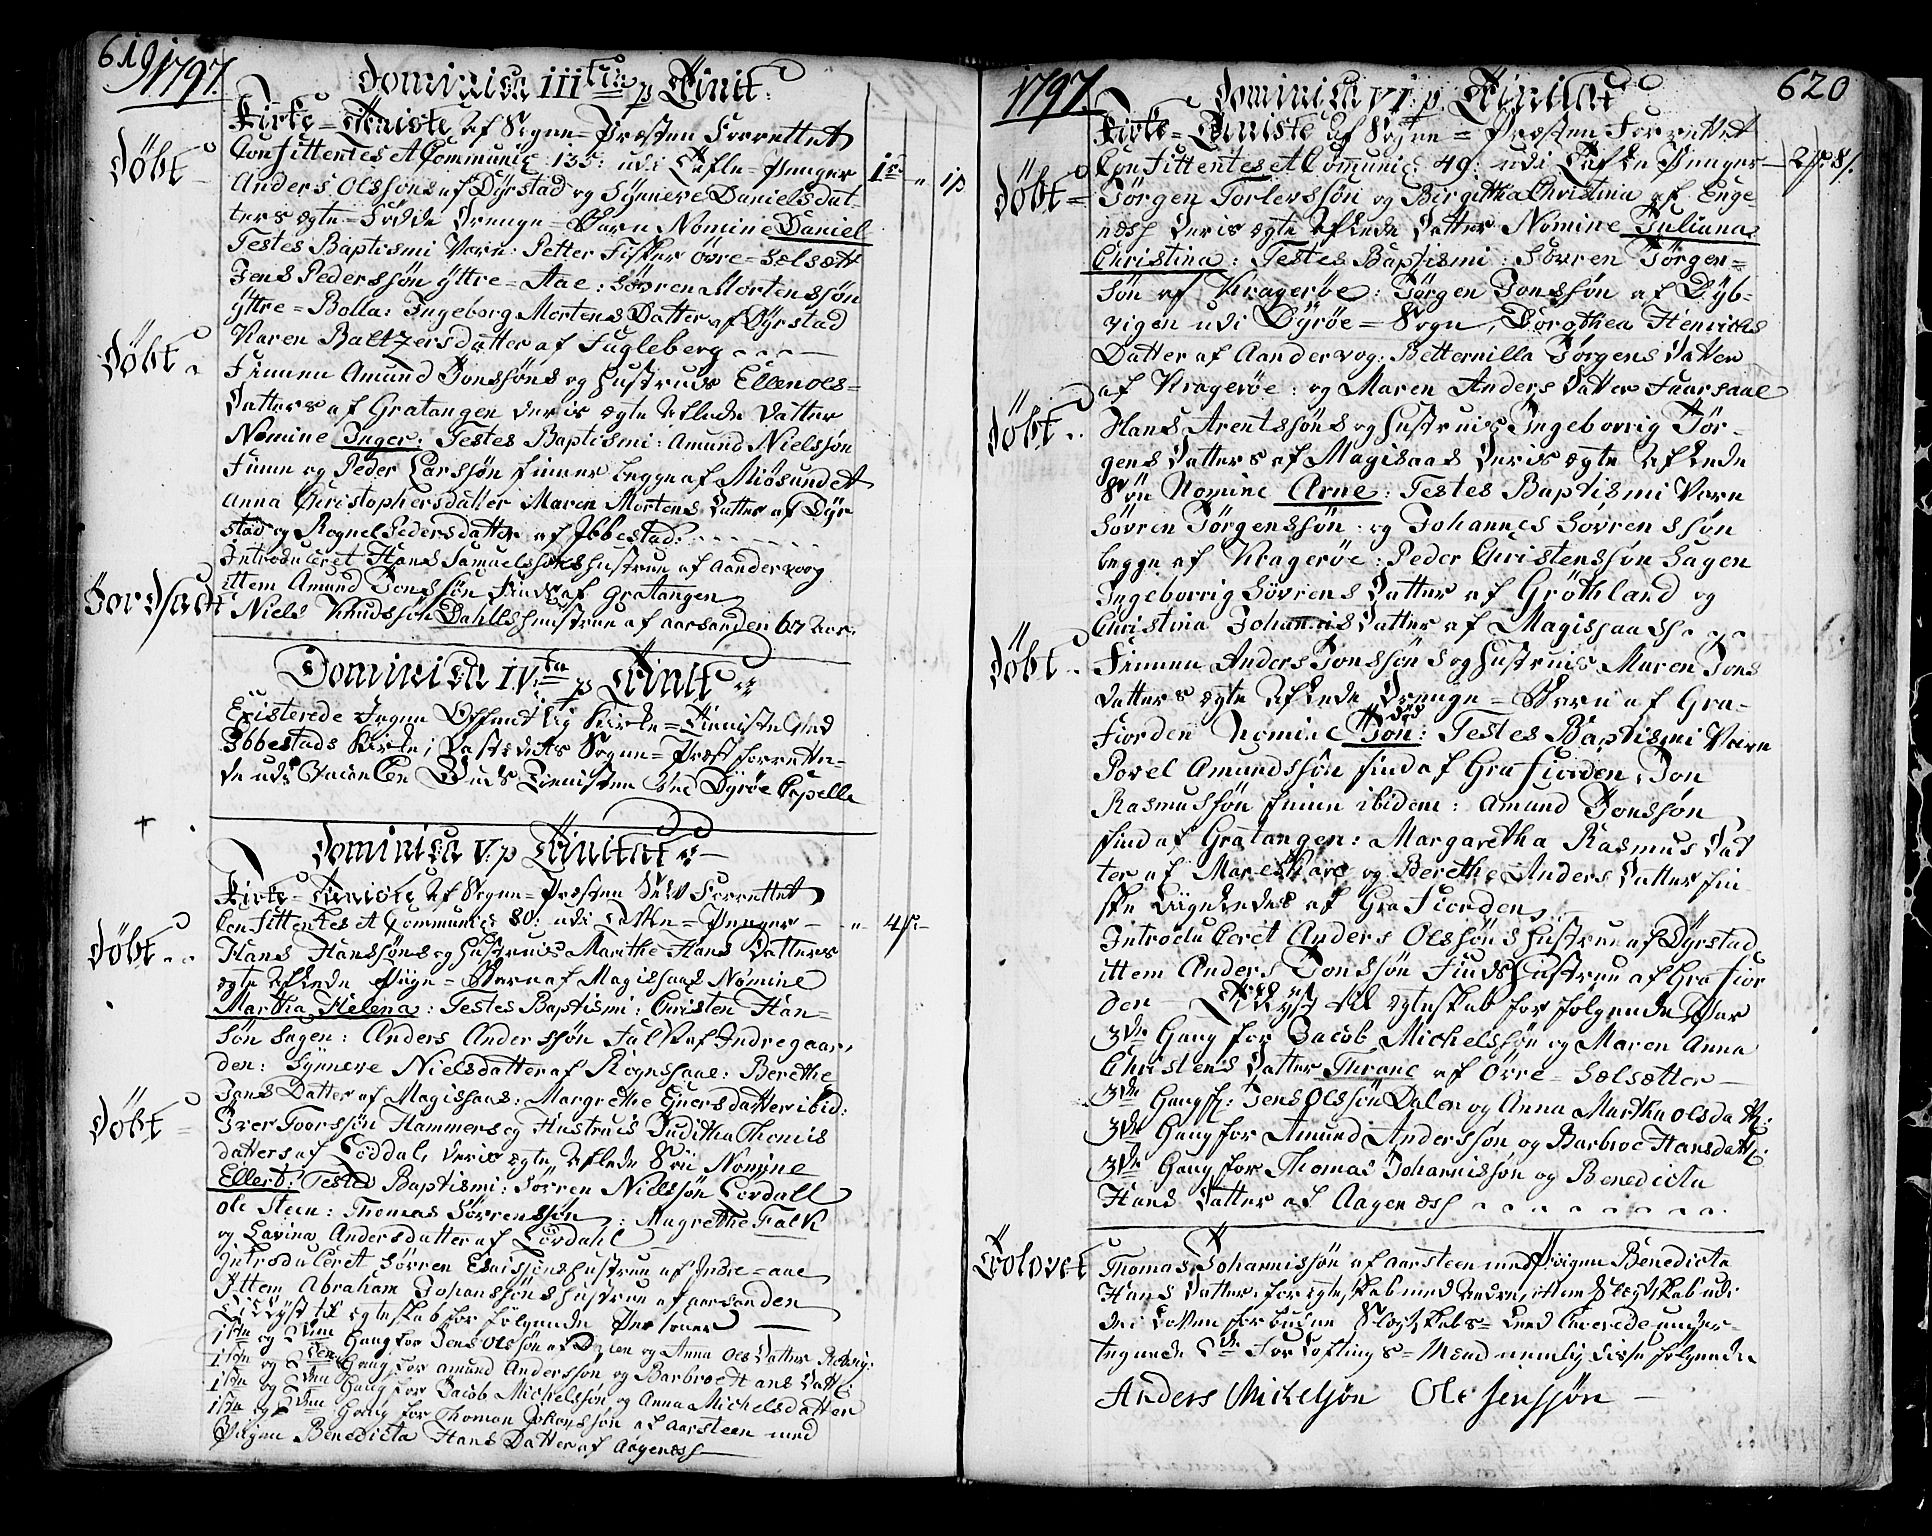 619
1797.
Dominica III tia p Trinit:
Kirke=Tieniste af Sogne=Præsten Forrettet
Confitentes et Communic: 135: udi Tafle=Penger
Døbt
Anders Olssøns af Dyrstad og Synneve Danielsdat-
ters ægte=Fødde Drenge=Barn Nomine Daniel
Testes Baptismi Varn: Petter Fisker øvre=Sælsætt
Jens Pederssøn Yttre=Aae: Søvren Mortenssøn
Yttre=Bolla: Ingeborg Mortens Datter af Dyrstad
Karen Baltzersdatter af Fugleberg
Døbt
Finnen Amund Jonssøns og Hustrues Ellen Ols=
Datters af Gratangen deris ægte aflede Datter
Nomine Inger: Testes Baptismi: Amund Nielssøn
Finn og Peder Larssøn Finner begge af Miøsundet
Anna Christophersdatter Maren Mortens Datter af Dyr
stad og Rognel Pedersdatter af Ibbestad:
Introduceret Hans Samuelssøns Hustrue af Aandervoog
ittem Amund Jonssøn Finds af Gratangen
Jordsadt
Niels Knudssøn Dahls Hustrue af Aarsanden 67 Aar.
Dominica IV ta p Trinit
Existerede Ingen Offentlig Kirke=Tieniste Ved
Ibbestads Kirke; da Stedets Sogne=Præst forrette-
de udi Vacancen Guds Tienisten Ved Dyrøe Capelle
Dominica V: p Trinitat
Kirke=Tieniste af Sogne=Præsten Selv Forrettet
Confitentes et Communic 80: udi Tafle=Penger - " 4 s -
Døbt
Hans Hanssøns og Hustrues Marithe Hans Datters
ægte aflede Piige=Barn af Magissaas Nomine
Martha Helena: Testes Baptismi: Christen Han=
søn Sagen: Anders Anderssøn Falk af Indregaar,
den: Synneve Nielsdatter af Rognssaae: Berethe
Jens Datter af Magissaas: Margrethe Ejversdatter ibid:
Døbt
Iver Toorssøn Hammers og Hustrues Juditha Thomis
datters af Løddal, deris ægte aflede Søn Nomine
Ellert: Testes Baptismi: Søvren Nielssøn Lørdall
Ole Steen: Thomas Sørrenssøn: Magrethe Falk
og Lavina Andersdatter af Lørdahl
Introduceret Sørren Hustrue af Indre=aae
Ittem Abraham Johanssøns Hustrue af Aarsanden
Tillyst til Ægteskab for følgende Personer
1ste og 2den Gang for Jens Olssøn af Dalen og Anna Ols Datter
1ste og 2den Gang for Amund Anderssøn og Barbroe Hans Datt:
1ste og 2den Gang for Jacob Michelssøn og Anna Michelsdatter
1ste og 2den Gang for Thomas af Aarsteen med
Piigen Benedicta Hans Datter af Aagenæss
1797.
620
Dominica VI: p Trinitat
Kirke=Tieniste af Sogne=Præsten Forrettet
Confitentes et Comunic: 49: udi Tafle Penger 2 8 s.
Døbt
Jørgen Torlevssøn og Birgitha Christina af Enge
næss deris ægte aflede Datter Nomine Juliana
Christina: Testes Baptismi: Søvren Jørgen=
søn af Kragerøe: Jørgen Jonssøn af Dyb-
vigen udi Dyrøe=Sogn, Dorothea Henrichs
Datter af Aandervog: Betternilla Jørgens Datter
af Kragerøe: og Maren Anders Datter Faarsaae
Døbt
Hans Arentssøns og Hustrues Ingeborrig Jør-
gens Datters af Magisaas deris ægte aflede
Søn Nomine Arne: Testes Baptismi Varn
Søvren Jørgenssøn: og Johannes Sovrenssøn
begge af Kragerøe: Peder Christenssøn Sagen
Ingeborrig Søvrens Datter af Grøthland og
Christina Johannis Datter af Magissaas
Døbt
Finnen Anders Jonssøns og Hustrues Maren Jons
datters ægte aflede Drenge=Barn af Gra-
Fiorden Nomine Jon: Testes Baptismi Varn
død
Povel Amundssøn Find af Grafiorden, Jon
Rasmussøn Finn ibidem: Amund Jonssøn
Find af Gratangen: Margaretha Rasmus Dat
ter af Mareskare og Berethe Anders Datter Fin-
ske Ligeledes af Grafiorden
Introduceret Anders Olssøns Hustrue af Dyrstad
ittem Anders Jonssøn Finds Hustrue af Grafior
den - Tillyst til Ægteskab for følgende Par
3die Gang for Jacob Michelssøn og Maren Anna
Christens Datter Thrane af Øvre-Sælsætter
3die Gang f: Jens Olssøn Dalen og Anna Martha Olsdatt:
3die Gang for Amund Anderssøn og Barbroe Hansdatt:
3die Gang for Thomas Johannissøn og Benedicta
Hans Datter af Aagenæss
Trolovet
Thomas Johannissøn af Aarsteen med Piigen Benedicta
Hans Datter, for Ægteskab med andre, ittem Slegtskab udi
dei Loven forbudne Slegtskabs=Leed Caverede under-
tegnede 2de Forlovings=Mænd nemlig disse følgende
Anders Mickelsøn Ole Jenssøn